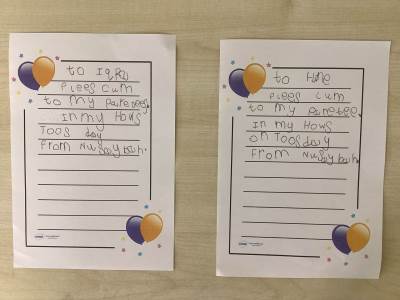 to Iqra
Plees cum
to my paretee.
In my Hows
Toos day
From Nusaybah.
to H
Plees cum
to my paretee.
In my Hows
on Toosday
From Nusaybah.